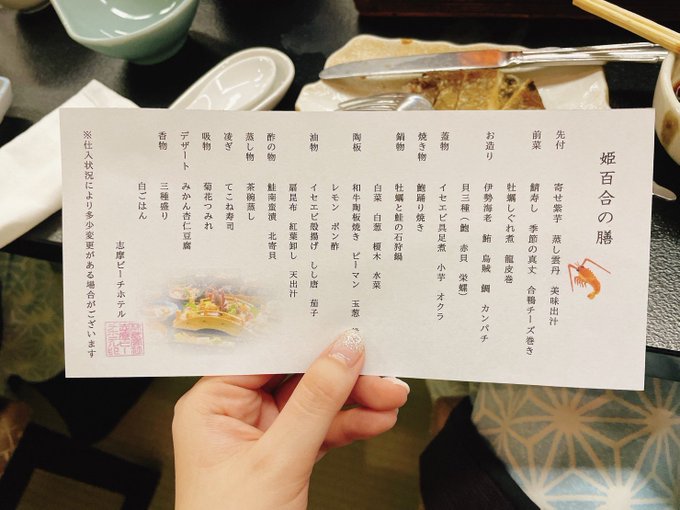 姫百合の膳
先付 寄せ紫芋 蒸し雲丹 美味出汁
前菜 鯖寿し 季節の真丈 合鴨チーズ巻き
牡蠣しぐれ煮 龍皮巻
お造り 伊勢海老 鮪 烏賊 鯛 カンパチ
貝三種(鮑 赤貝 栄螺)
蓋物 イセエビ具足煮 小芋 オクラ
焼き物 鮑踊り焼き
鍋物 牡蠣と鮭の石狩鍋
白菜 白葱 榎木 水菜
陶板 和牛陶板焼き ピーマン 玉葱
レモン ポン酢
油物 イセエビ殻揚げ しし唐 茄子
扇昆布 紅葉卸し 天出汁
酢の物 鮭南蛮漬 北寄貝
蒸し物 茶碗蒸し
凌ぎ てこね寿司
吸物 菊花つみれ
デザート みかん杏仁豆腐
香物 三種盛り
白ごはん
志摩ビーチホテル
※仕入状況により多少変更がある場合がございます